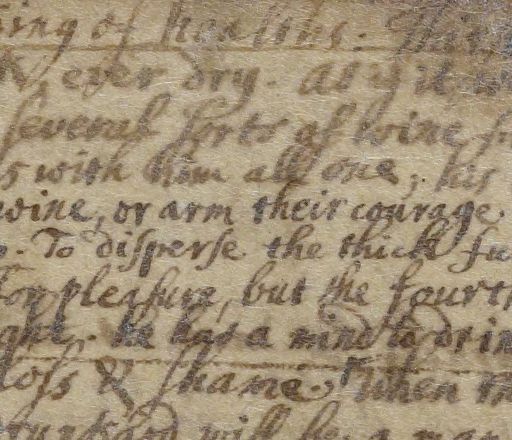 ing of healths:
ever dry. At
severall sorts of wine
s with him all one, his
wine, or arm their courage.
To disperse the thick fu
for pleasure, but the fourth
ght. he has a mind to drin
loss & shame. When th
will be a